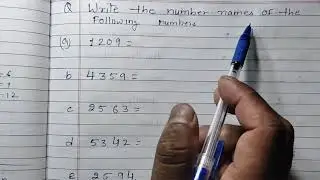 Q Write the number names of the
Following numbers
(a) 1209 =
b 4359 =
c 2563 =
d 5342 =
e 2594
= 6
= 1
= 12